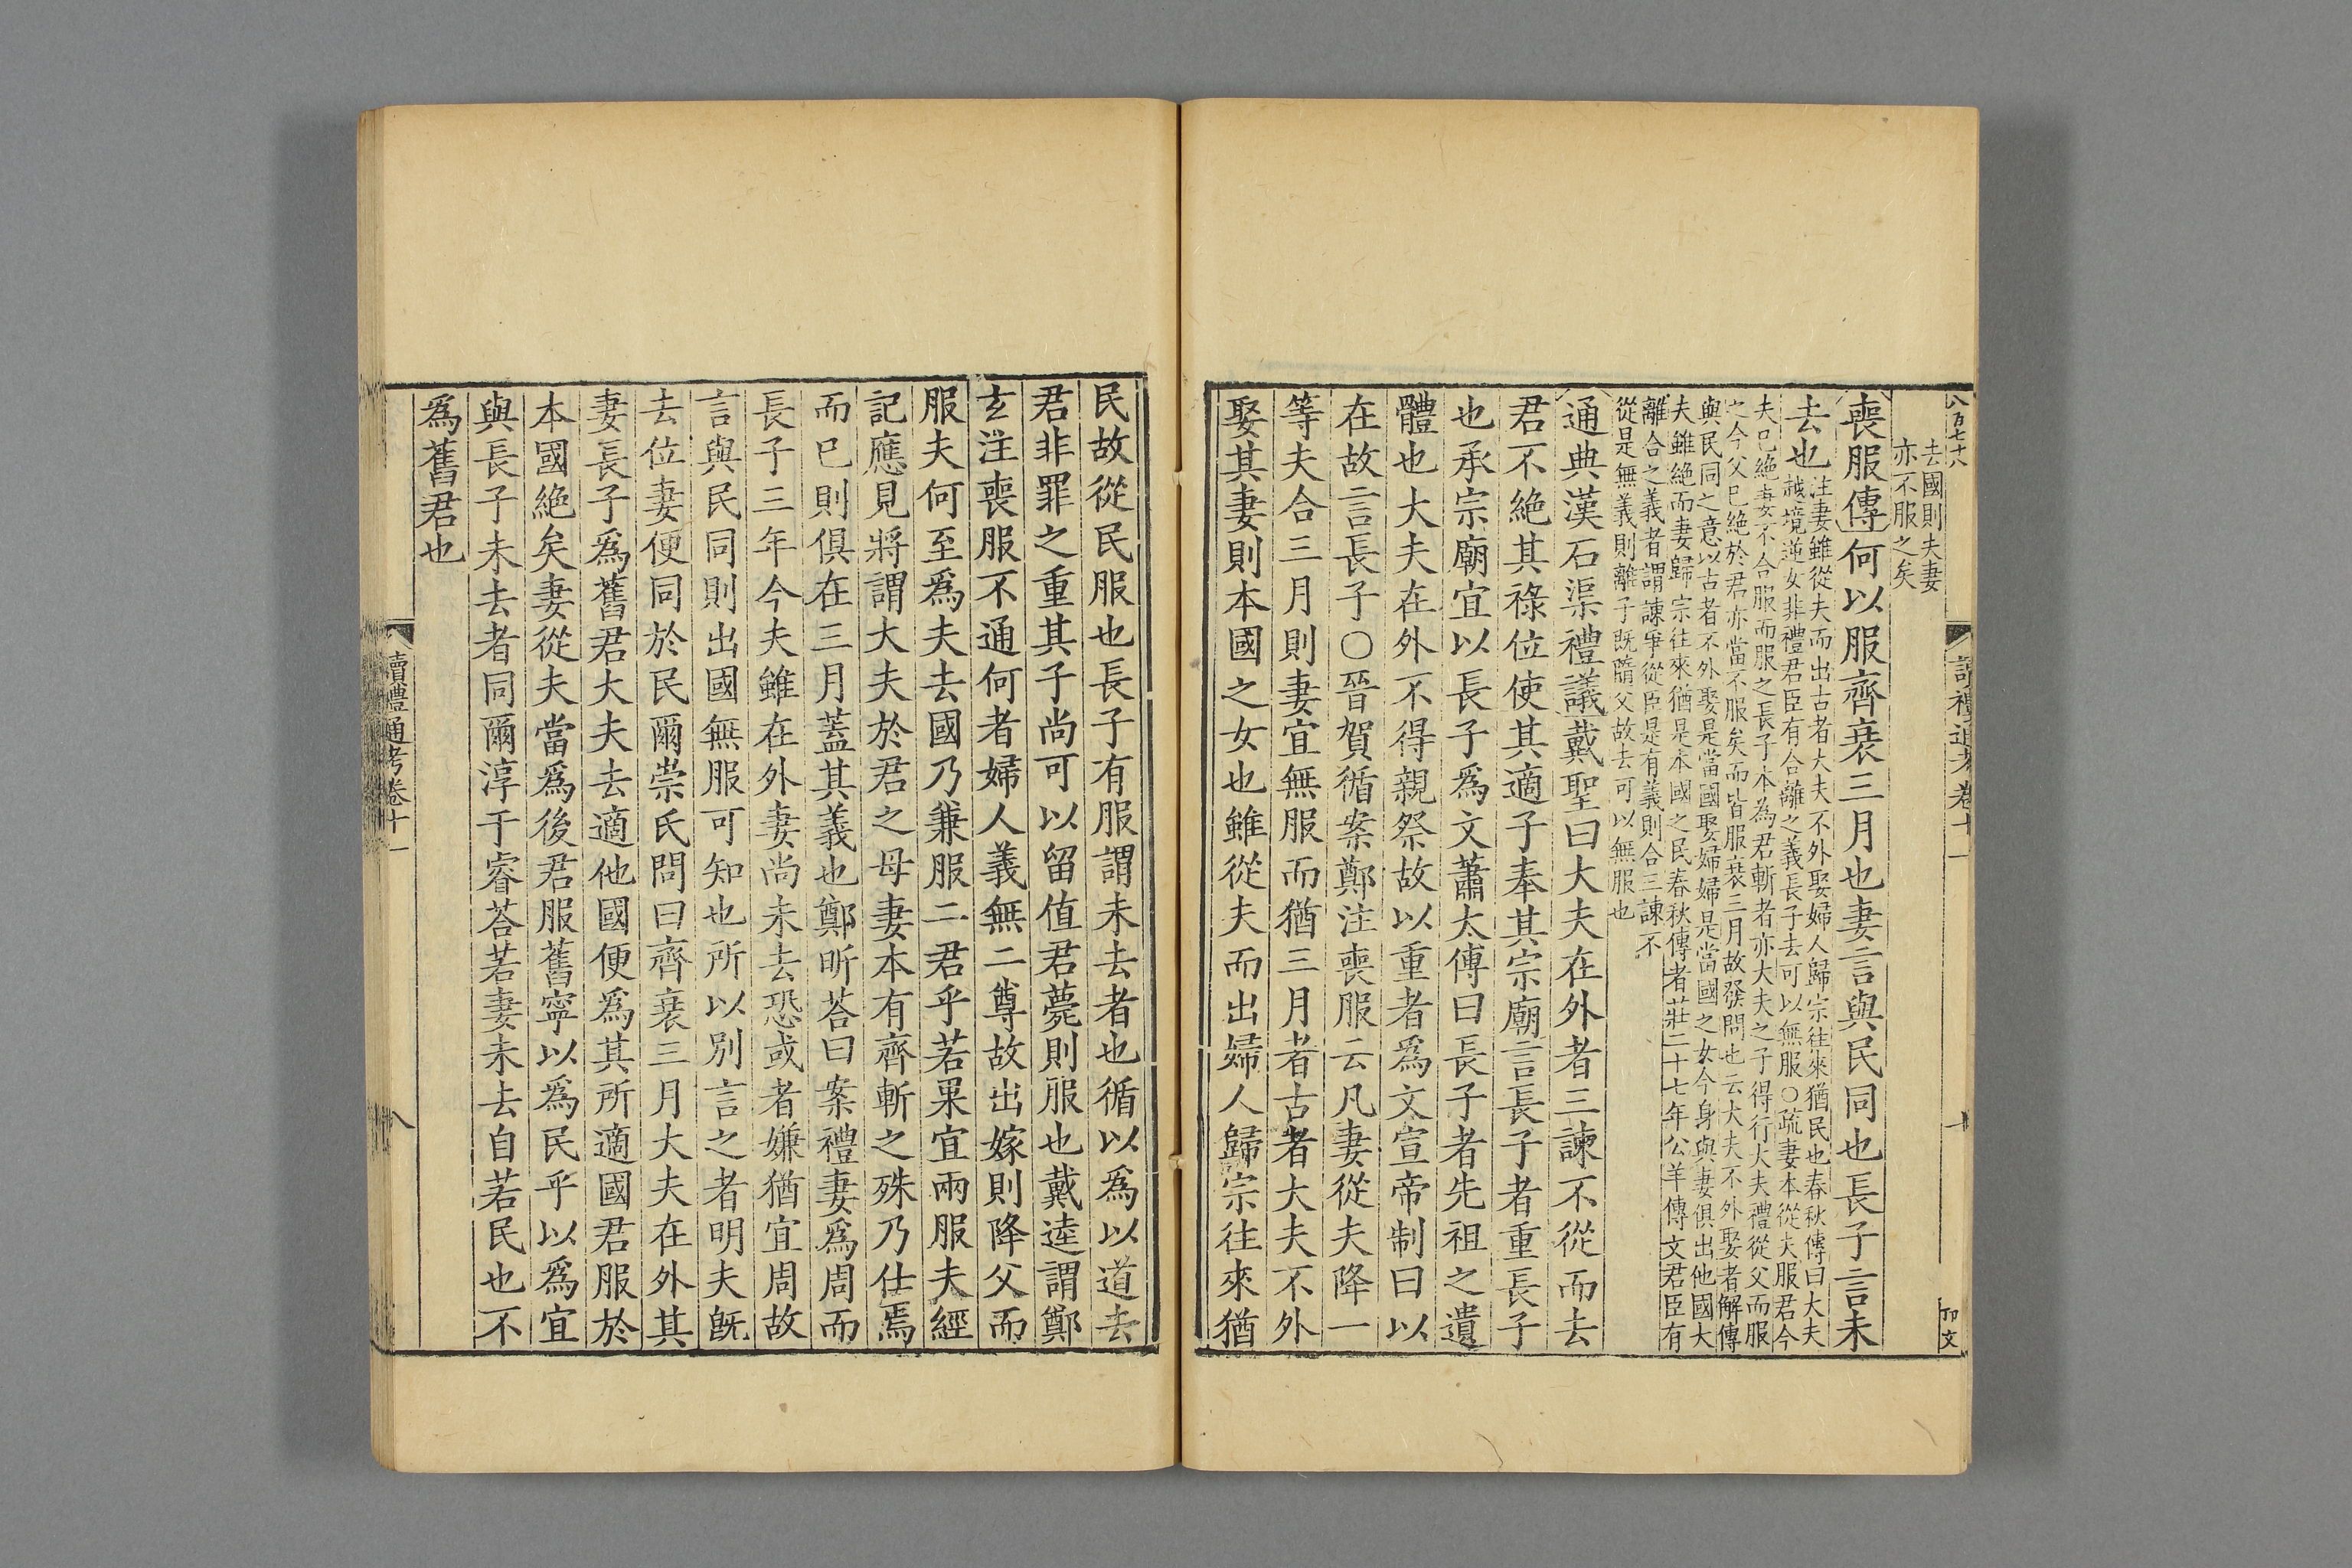 八百七十八
去國則夫妻
亦不服之矣
喪服傳何以服齊衰三月也妻言與民同也長子言未
去也
注妻雖從夫而出古者大夫不外娶婦人歸宗往來猶民也春秋傳曰大夫
越境逆女非禮君臣有合離之義長子去可以無服○疏妻本從夫服君今
夫已絶妻不合服而服之長子本為君斬者亦大夫之子得行大夫禮從父而服
之今父已絶於君亦當不服矣而皆服衰三月故發問也云大夫不外娶者解傳
與民同之意以古者不外娶是當國娶婦婦是當國之女今身與妻俱出他國大
夫雖絶而妻歸宗往來猶是本國之民春秋傳者莊二十七年公羊傳文君臣有
離合之義者謂諫爭從臣是有義則合三諫不
從是無義則離子既隨父故去可以無服也
通典漢石渠禮議戴聖曰大夫在外者三諫不從而去
君不絶其祿位使其適子奉其宗廟言長子者重長子
也承宗廟宜以長子爲文蕭太傅曰長子者先祖之遺
體也大夫在外不得親祭故以重者爲文宣帝制曰以
在故言長子○晉賀循案鄭注喪服云凡妻從夫降一
等夫合三月則妻宜無服而猶三月者古者大夫不外
娶其妻則本國之女也雖從夫而出婦人歸宗往來猶
民故從民服也長子有服謂未去者也循以爲以道去
君非罪之重其子尚可以留值君薨則服也戴逵謂鄭
玄注喪服不通何者婦人義無二尊故出嫁則降父而
服夫何至爲夫去國乃兼服二君乎若果宜兩服夫經
記應見將謂大夫於君之母妻本有齊斬之殊乃仕焉
而已則俱在三月蓋其義也鄭昕荅曰案禮妻爲周而
長子三年今夫雖在外妻尚未去恐或者嫌猶宜周故
言與民同則出國無服可知也所以別言之者明夫既
去位妻便同於民爾崇氏問曰齊衰三月大夫在外其
妻長子爲舊君大夫去適他國便爲其所適國君服於
本國絶矣妻從夫當爲後君服舊寧以爲民乎以爲宜
與長子未去者同爾淳于睿荅若妻未去自若民也不
爲舊君也
讀禮通考卷十一
八